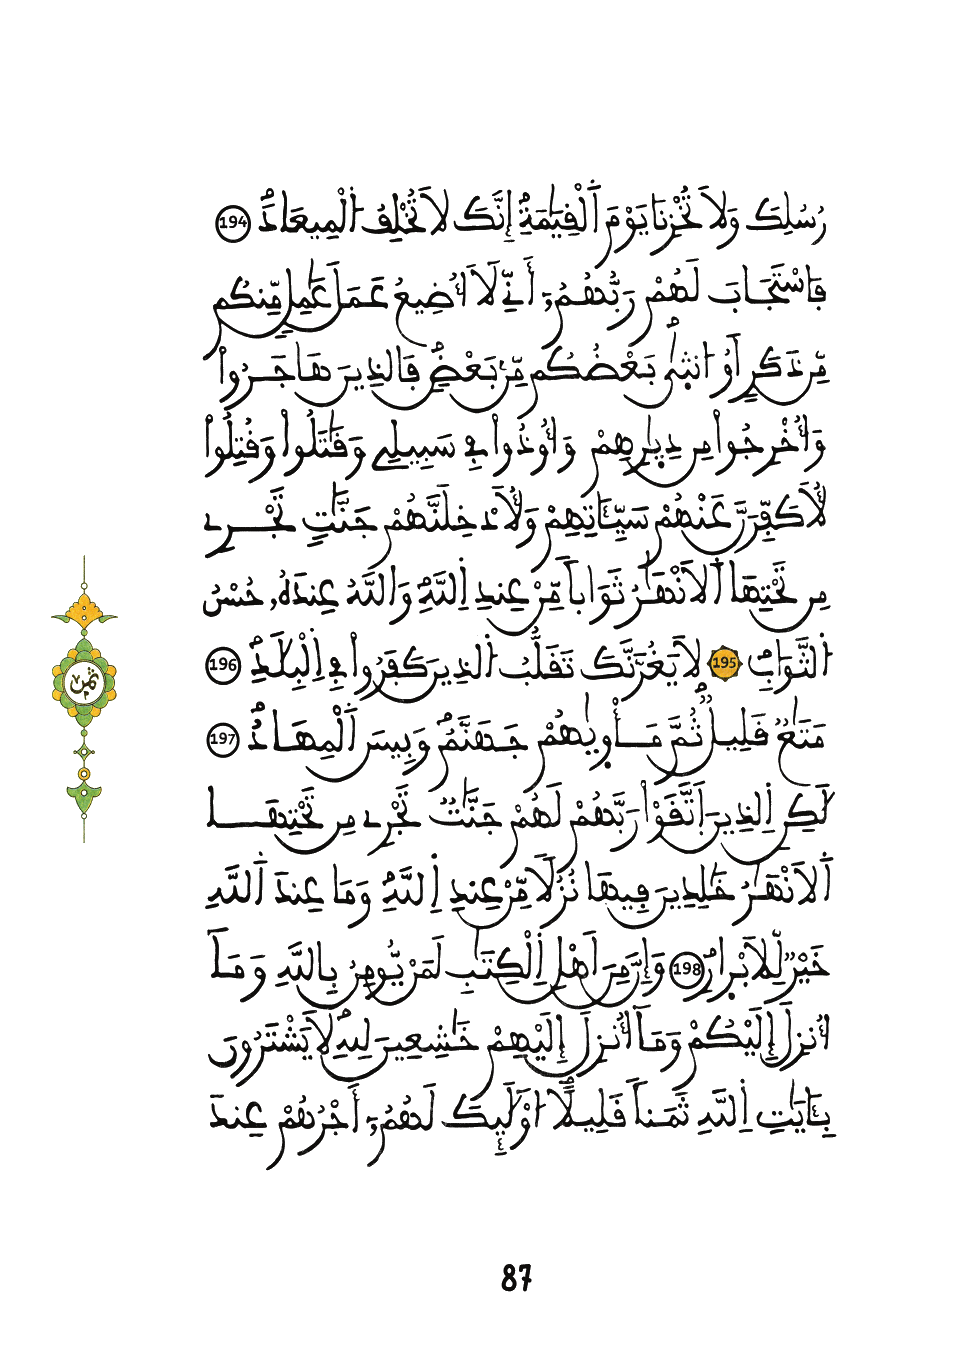 رُسُلِكَ وَلَا تُخْزِنَا يَوْمَ اَ۬لْقِيَٰمَةِۖ إِنَّكَ لَا تُخْلِفُ اُ۬لْمِيعَادَۖ 194
فَاسْتَجَابَ لَهُمْ رَبُّهُمُۥٓ أَنِّے لَآ أُضِيعُ عَمَلَ عَٰمِلٖ مِّنكُم
مِّن ذَكَرٍ اَوُ ا۟نث۪يٰۖ بَعْضُكُم مِّنۢ بَعْضٖۖ فَالذِينَ هَاجَرُواْ
وَأُخْرِجُواْ مِن دِيٰ۪رِهِمْ وَأُوذُواْ فِے سَبِيلِے وَقَٰتَلُواْ وَقُتِلُواْ
لَأُكَفِّرَنَّ عَنْهُمْ سَيِّـَٔاتِهِمْ وَلَأُدْخِلَنَّهُمْ جَنَّٰتٖ تَجْرِے
مِن تَحْتِهَا اَ۬لَانْهَٰرُ ثَوَاباٗ مِّنْ عِندِ اِ۬للَّهِۖ وَاللَّهُ عِندَهُۥ حُسْنُ
اُ۬لثَّوَابِۖ 195 لَا يَغُرَّنَّكَ تَقَلُّبُ اُ۬لذِينَ كَفَرُواْ فِے اِ۬لْبِلَٰدِۖ 196
مَتَٰعٞ قَلِيلٞ ثُمَّ مَأْو۪يٰهُمْ جَهَنَّمُۖ وَبِيسَ اَ۬لْمِهَادُۖ 197
لَٰكِنِ اِ۬لذِينَ اَ۪تَّقَوْاْ رَبَّهُمْ لَهُمْ جَنَّٰتٞ تَجْرِے مِن تَحْتِهَا
اَ۬لَانْهَٰرُ خَٰلِدِينَ فِيهَا نُزُلاٗ مِّنْ عِندِ اِ۬للَّهِۖ وَمَا عِندَ اَ۬للَّهِ
خَيْرٞ لِّلَابْر۪ارِۖ 198 وَإِنَّ مِنَ اَهْلِ اِ۬لْكِتَٰبِ لَمَنْ يُّومِنُ بِاللَّهِ وَمَآ
أُنزِلَ إِلَيْكُمْ وَمَآ أُنزِلَ إِلَيْهِمْ خَٰشِعِينَ لِلهِۖ لَا يَشْتَرُونَ
بِـَٔايَٰتِ اِ۬للَّهِ ثَمَناٗ قَلِيلاًۖ ا۟وْلَٰٓئِكَ لَهُمُۥٓ أَجْرُهُمْ عِندَ
ثمن
87